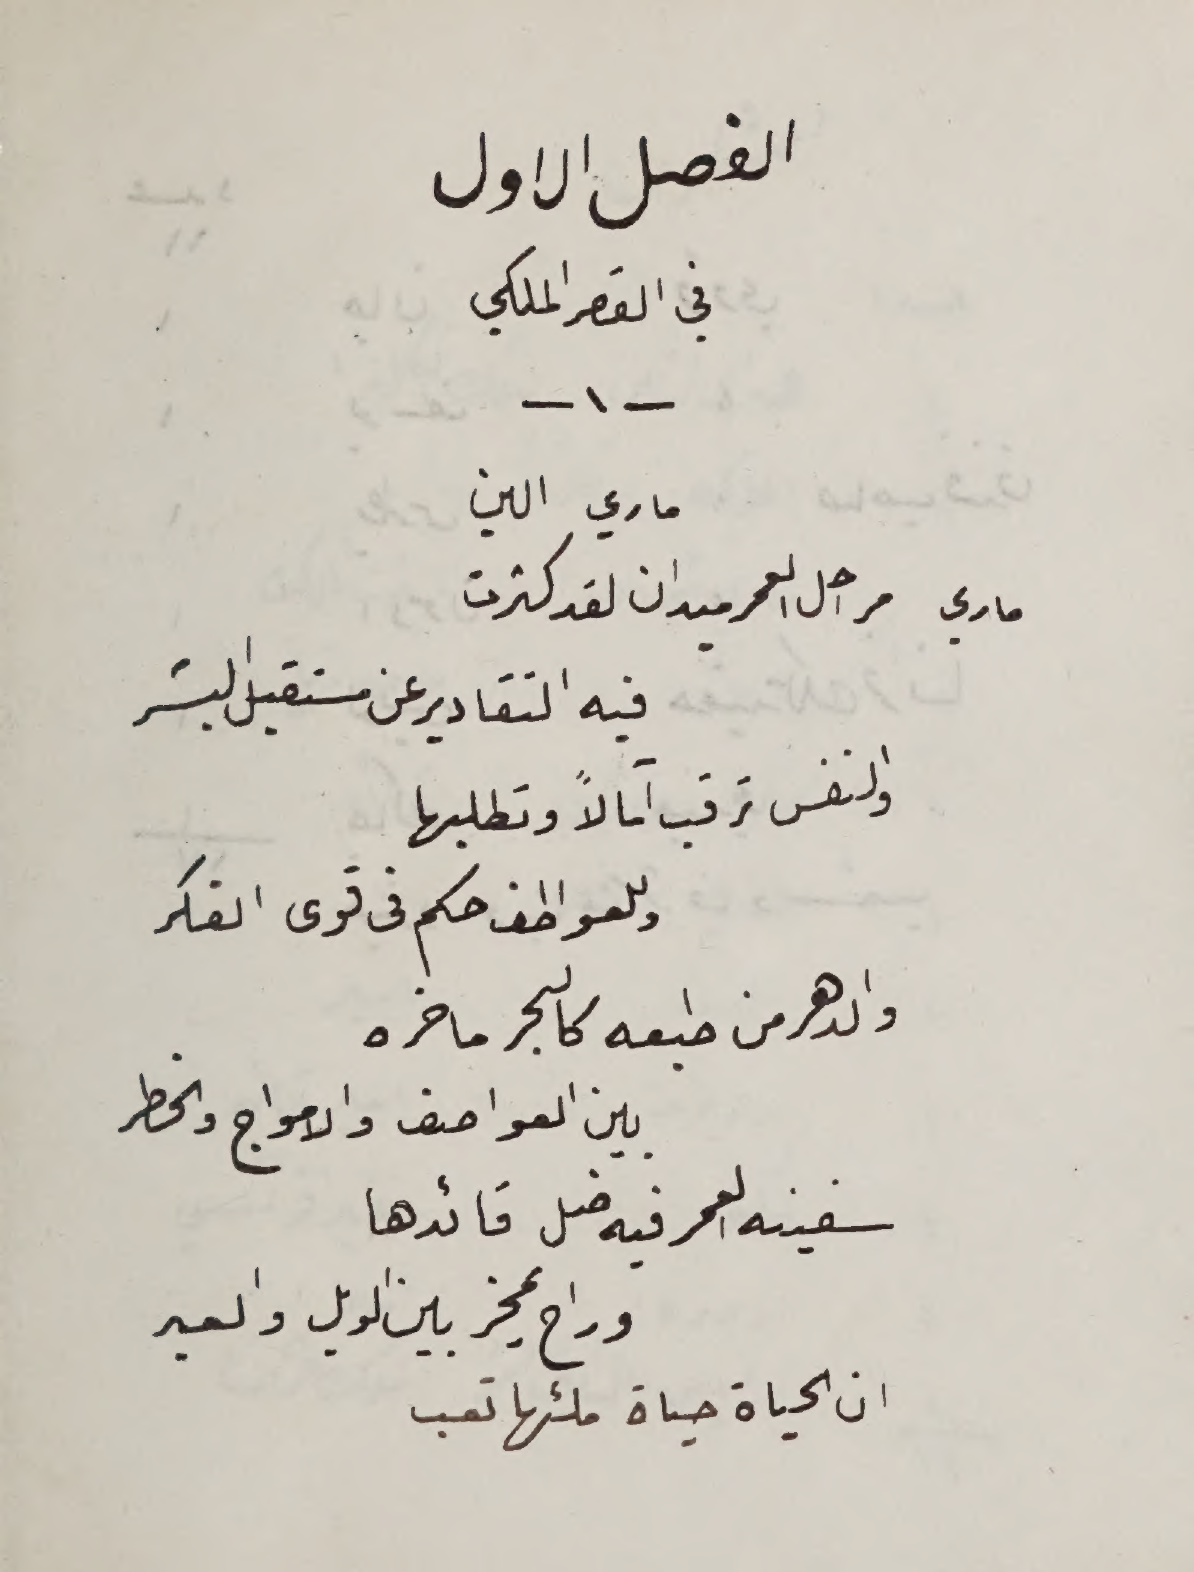 الفصل الاول
في القصر الملكي
— ١ —
ماري الين
ماري مراحل العمر ميدان لقد كثرت
فيه التقادير عن مستقبل البشر
والنفس ترقب آمالاً وتطلبها
وللعواطف حكم في قوى الفكر
والدهر من طبعه كالبحر ماخره
بين العواصف والامواج والخطر
سفينه العمر فيه ضل قائدها
وراح يمخر بين الويل والعبر
ان الحياة حياة ملئها تعب